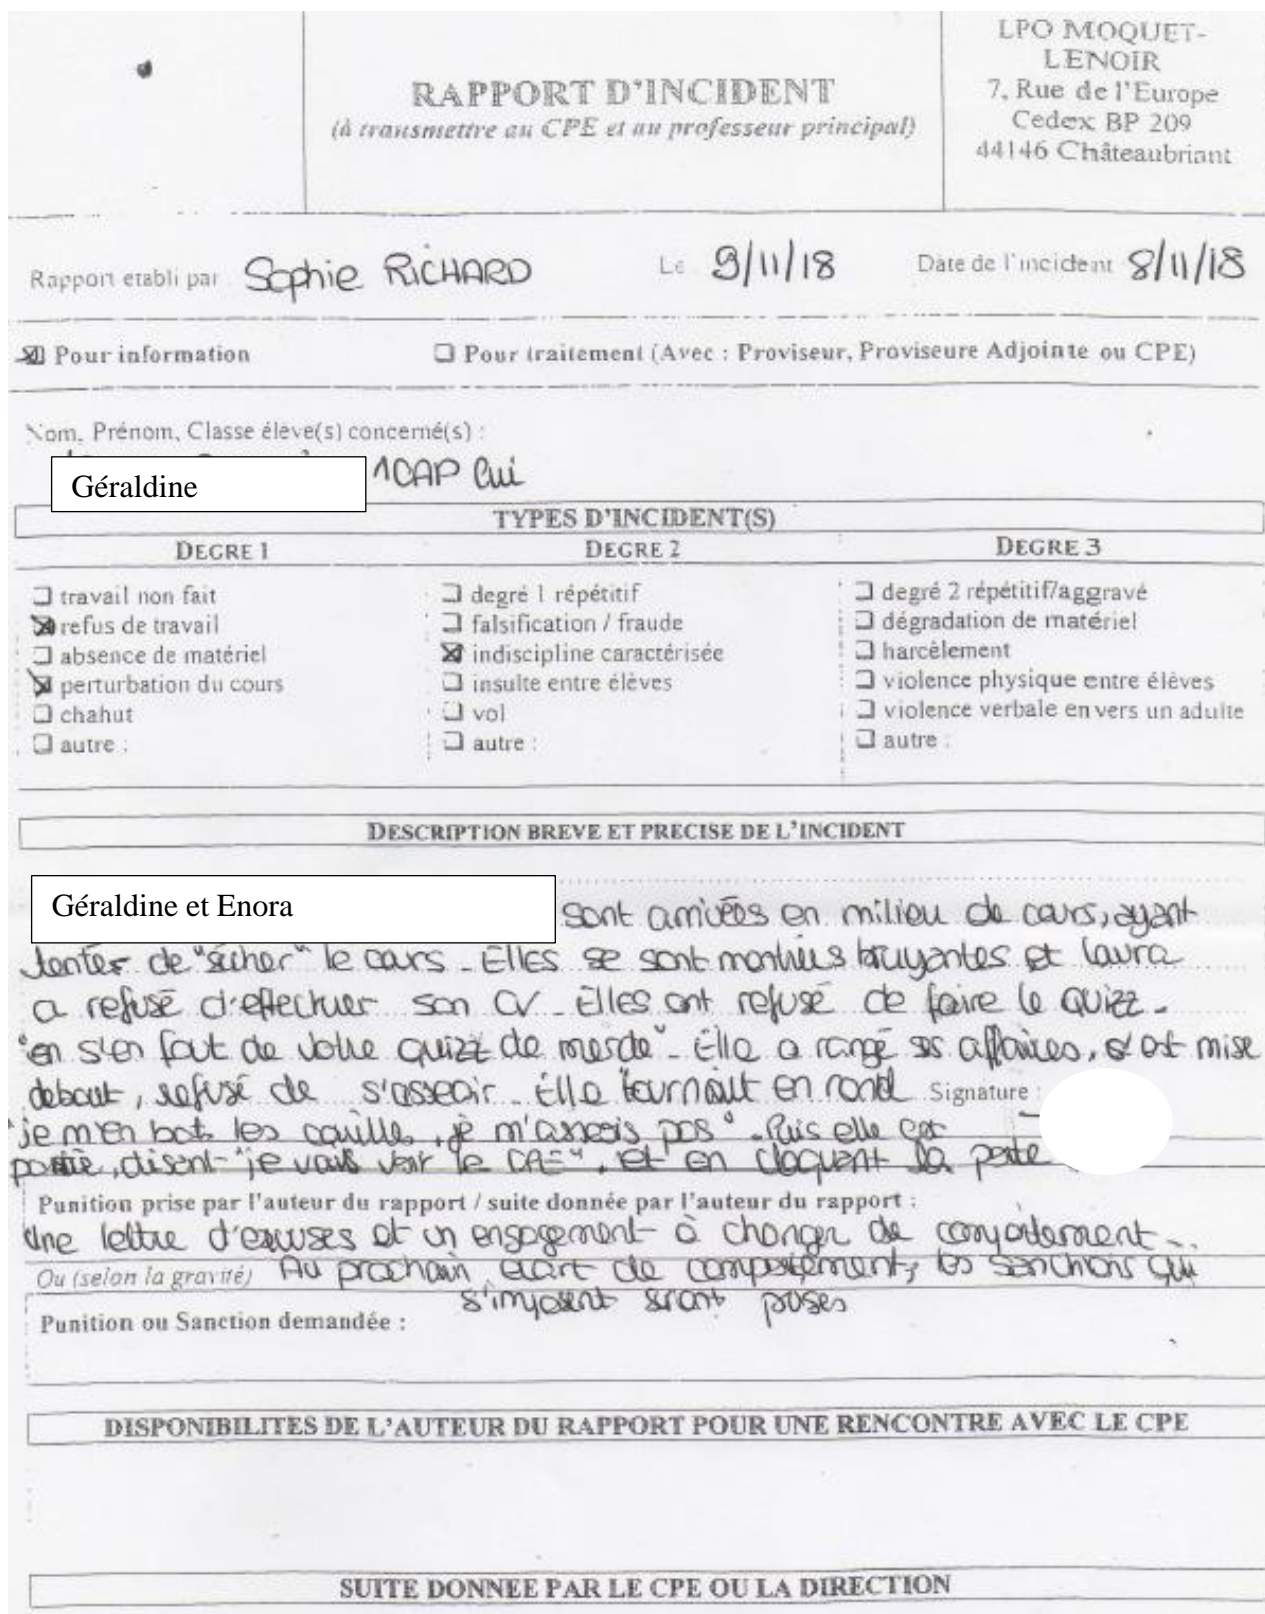 LPO MOQUET-
LENOIR
7, Rue de l'Europe
Cedex BP 209
44146 Châteaubriant
RAPPORT D'INCIDENT
(à transmettre au CPE et au professeur principal)
Rapport etabli par Sophie RICHARD Le 9/11/18 Date de l'incident 8/11/18
Pour information Pour traitement (Avec : Proviseur, Proviseure Adjointe ou CPE)
Nom, Prénom, Classe élève(s) concerné(s) :
Géraldine 1CAP Cui
TYPES D'INCIDENT(S)
DEGRE 1 DEGRE 2 DEGRE 3
travail non fait degré 1 répétitif degré 2 répétitif/aggravé
refus de travail falsification / fraude dégradation de matériel
absence de matériel indiscipline caractérisée harcèlement
perturbation du cours insulte entre élèves violence physique entre élèves
chahut vol violence verbale envers un adulte
autre : autre : autre :
DESCRIPTION BREVE ET PRECISE DE L'INCIDENT
Géraldine et Enora sont arrivées en milieu de cours, ayant
tentés de "sécher" le cours - Elles se sont montrées bruyantes et Laura
a refusé d'effectuer son CV - Elles ont refusé de faire le quizz -
"en s'en fout de votre quizz de merde" - Elle a rangé ses affaires, s'est mise
debout, refusé de s'asseoir - Elle tournait en rond Signature :
"je m'en bat les couille, je m'asseois pas" - Puis elle est
partie, disant "je vais voir le CPE", et en claquant la porte
Punition prise par l'auteur du rapport / suite donnée par l'auteur du rapport :
Une lettre d'excuses et un engagement à changer de comportement -
Ou (selon la gravité) Au prochain écart de comportement, les sanctions qui
s'imposent seront posés
Punition ou Sanction demandée :
DISPONIBILITES DE L'AUTEUR DU RAPPORT POUR UNE RENCONTRE AVEC LE CPE
SUITE DONNEE PAR LE CPE OU LA DIRECTION